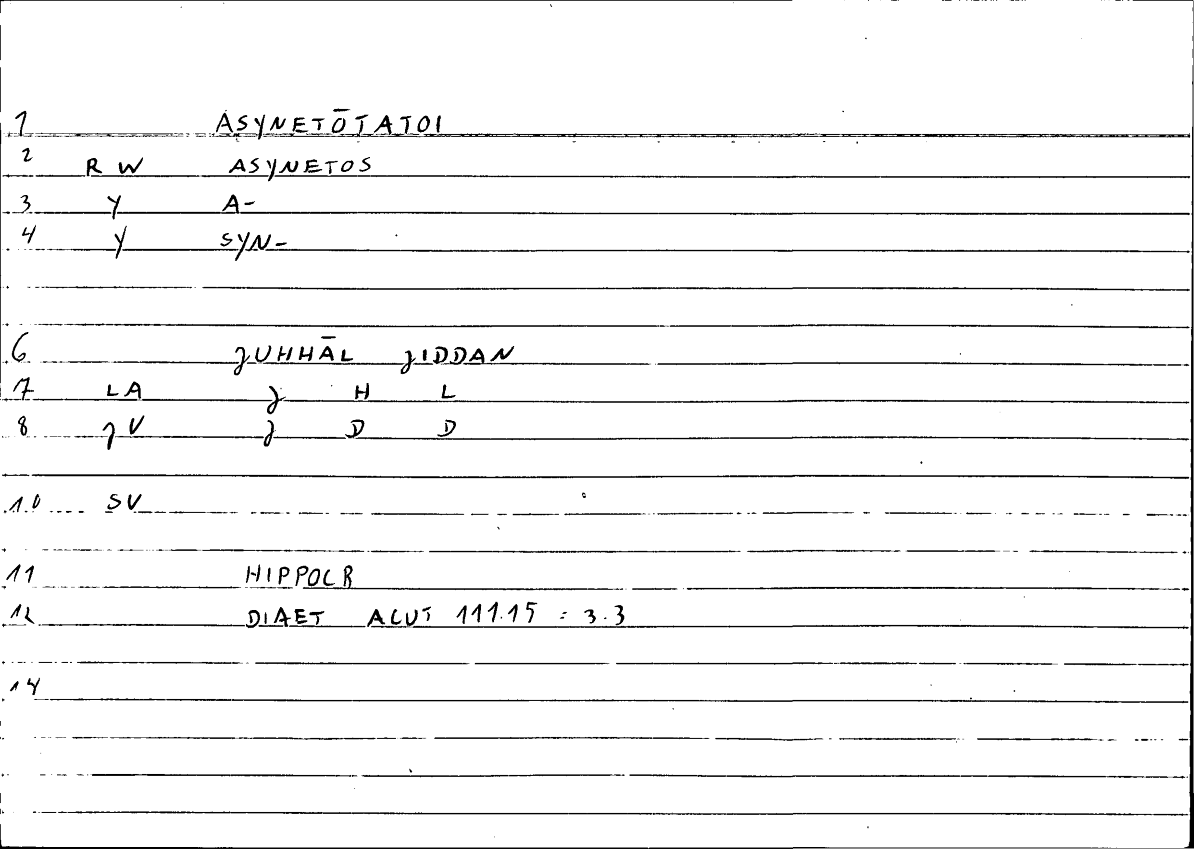 1 ASYNETŌTATOI
2 R W ASYNETOS
3 Y A-
4 Y SYN-
6 ȷUHHĀL ȷIDDAN
7 LA ȷ H L
8 ȷV ȷ D D
10 SV
11 HIPPOCR
12 DIAET ACUT 111.15 = 3.3
14